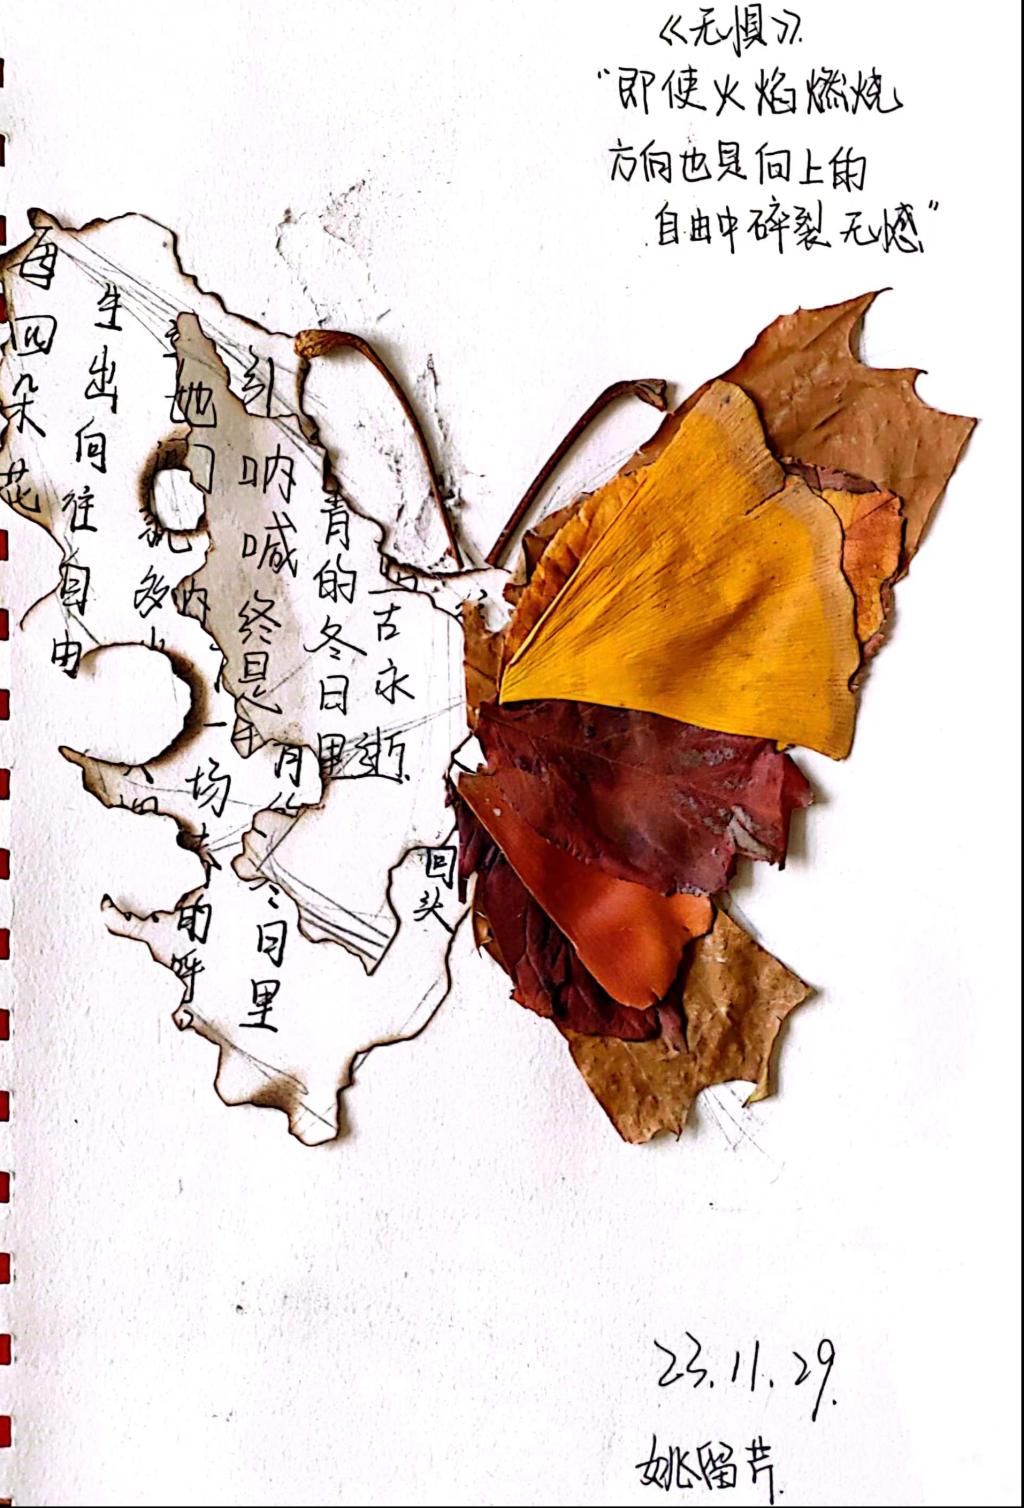 《无惧》
“即使火焰燃烧
方向也是向上的
自由中碎裂无憾”
回
朵
花
生
出
向
往
自
由
她
门
多
内
一
场
的
呼
引
呐
喊
终
月
冬日里
青的冬日里
古永逝
回头
23.11.29.
姚留芹